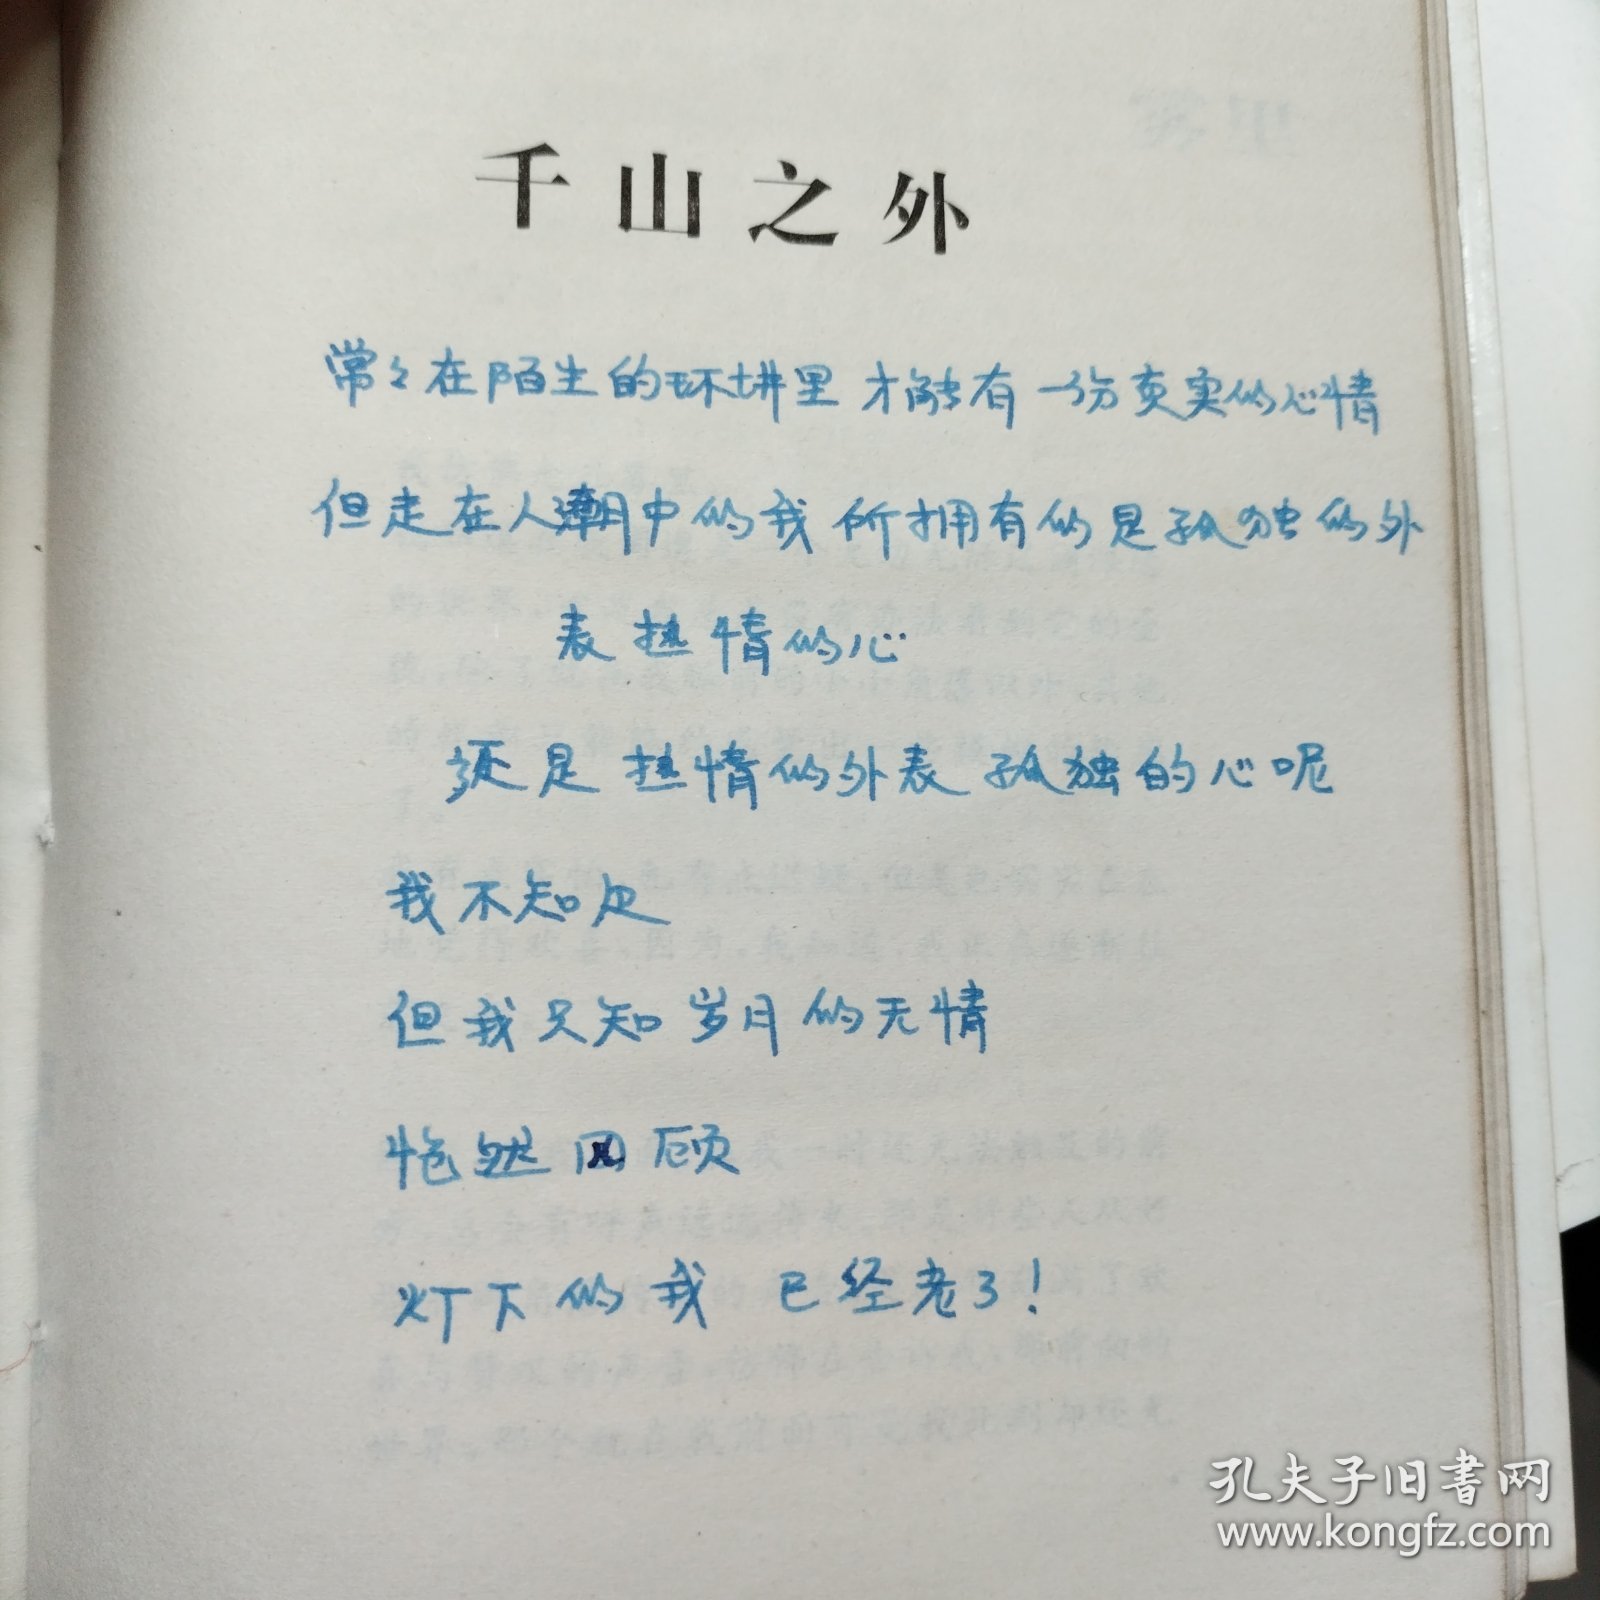 千山之外
常々在陌生的环境里 才能有一份真实的心情
但走在人潮中的我 所拥有的是孤独的外
表热情的心
还是热情的外表孤独的心呢
我不知
但我只知岁月的无情
恍然回顾
灯下的我 已经老了!
孔夫子旧书网
www.kongfz.com